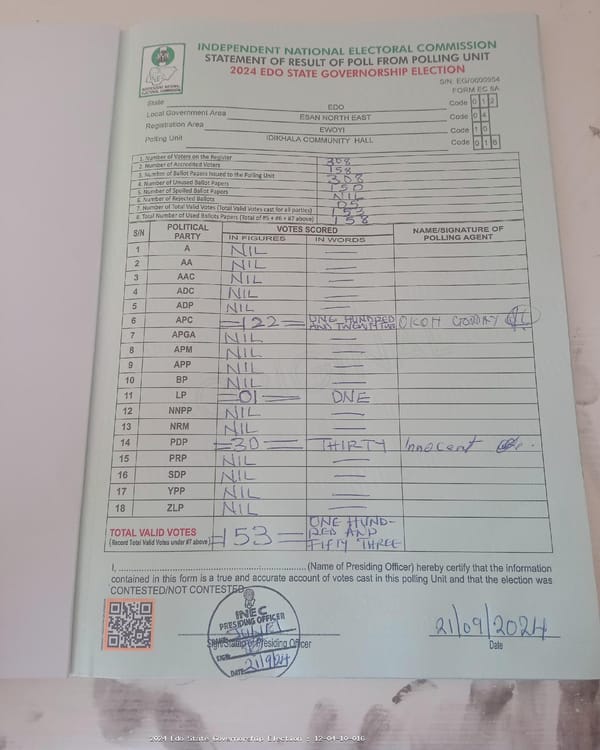 INDEPENDENT NATIONAL ELECTORAL COMMISSION
STATEMENT OF RESULT OF POLL FROM POLLING UNIT
2024 EDO STATE GOVERNORSHIP ELECTION
S/N: EG/0000954
FORM EC 8A
State EDO Code 0 1 2
Local Government Area ESAN NORTH EAST Code 0 4
Registration Area EWOYI Code 1 0
Polling Unit IDIKHALA COMMUNITY HALL Code 0 1 6
1. Number of Voters on the Register 308
2. Number of Accredited Voters 158
3. Number of Ballot Papers Issued to the Polling Unit 308
4. Number of Unused Ballot Papers 150
5. Number of Spoiled Ballot Papers NIL
6. Number of Rejected Ballots 05
7. Number of Total Valid Votes (Total Valid Votes cast for all parties) 153
8. Total Number of Used Ballots Papers (Total of #5 + #6 + #7 above) 158
S/N POLITICAL PARTY VOTES SCORED NAME/SIGNATURE OF POLLING AGENT
IN FIGURES IN WORDS
1 A NIL —
2 AA NIL —
3 AAC NIL —
4 ADC NIL —
5 ADP NIL —
6 APC =122= ONE HUNDRED AND TWENTY TWO OKOH
7 APGA NIL —
8 APM NIL —
9 APP NIL —
10 BP NIL —
11 LP =01= ONE
12 NNPP NIL —
13 NRM NIL —
14 PDP =30= THIRTY Innocent
15 PRP NIL —
16 SDP NIL —
17 YPP NIL —
18 ZLP NIL —
TOTAL VALID VOTES =153= ONE HUND-
(Record Total Valid Votes under #7 above) RED AND
FIFTY THREE
I, ........................ (Name of Presiding Officer) hereby certify that the information
contained in this form is a true and accurate account of votes cast in this polling Unit and that the election was
CONTESTED/NOT CONTESTED
INEC
PRESIDING OFFICER
Sign/Stamp of Presiding Officer
SIGN
DATE 21/9/24
21/09/2024
Date
2024 Edo State Governorship Election : 12-04-10-016